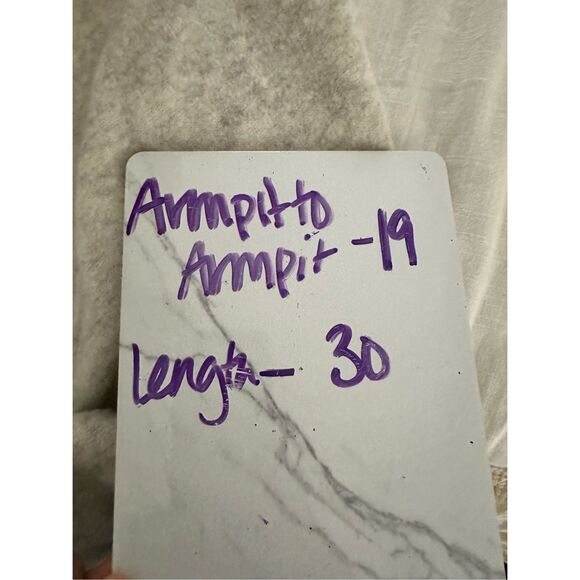 Armpit to
Armpit - 19
Length - 30